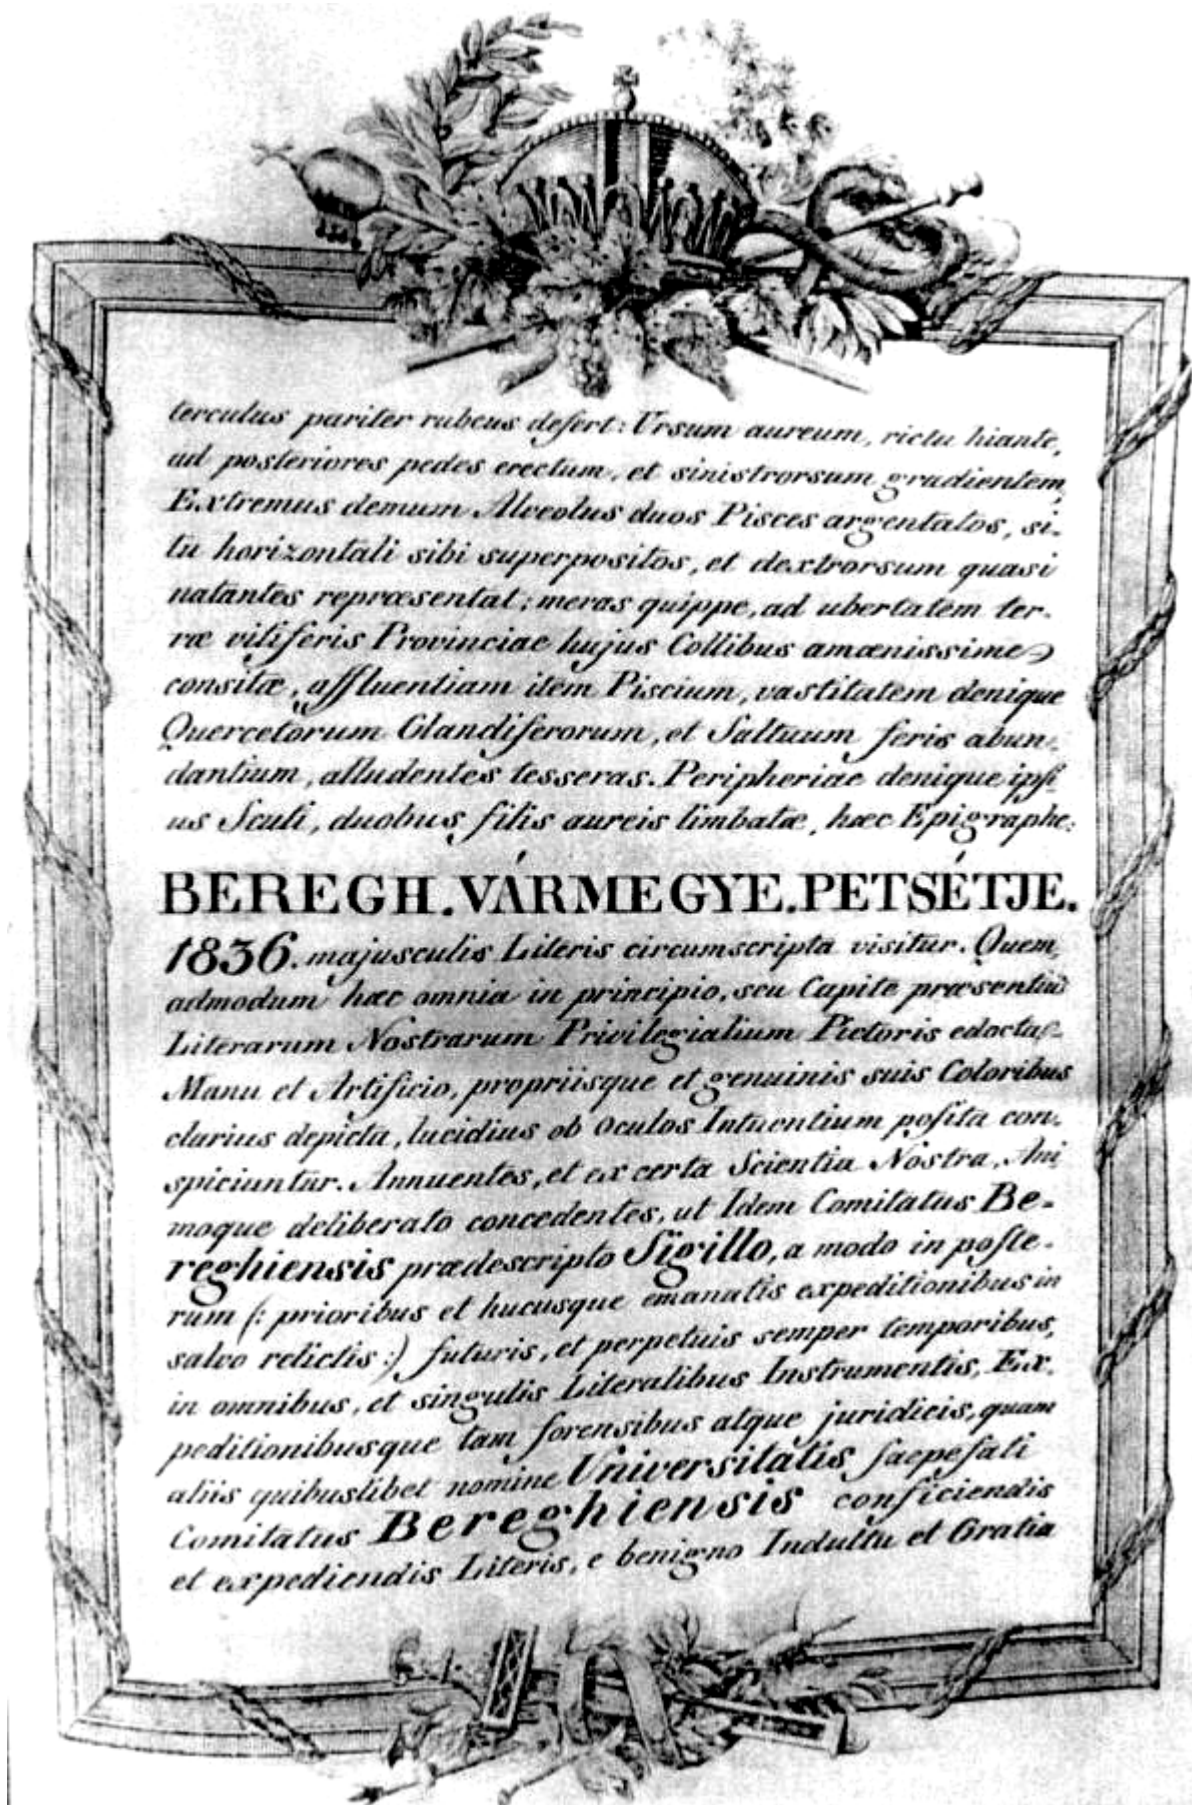 terculus pariter rubeus defert: Ursum aureum, rictu hiante,
ad posteriores pedes erectum, et sinistrorsum gradientem,
Extremus demum Alveolus duos Pisces argentatos, si-
tu horizontali sibi superpositos, et dextrorsum quasi
natantes repræsentat; meras quippe, ad ubertatem ter-
ræ vitiferis Provinciae hujus Collibus amœnissime
consitæ, affluentiam item Piscium, vastitatem denique
Quercetorum Glandiferorum, et Saltuum feris abun-
dantium, alludentes tesseras. Peripheriae denique ipsi-
us Scuti, duobus filis aureis limbatæ, hæc Epigraphe:
BEREGH.VÁRMEGYE.PETSÉTJE.
1836. majusculis Literis circumscripta visitur. Quem
admodum hæc omnia in principio, seu Capite præsentium
Literarum Nostrarum Privilegialium Pictoris edocta
Manu et Artificio, propriisque et genuinis suis Coloribus
clarius depicta, lucidius ob oculos Intuentium posita con-
spiciuntur. Annuentes, et ex certa Scientia Nostra, Ani
moque deliberato concedentes, ut Idem Comitatus Be-
reghiensis prædescripto Sigillo, a modo in poste-
rum (: prioribus et hucusque emanatis expeditionibus in
salvo relictis :) futuris, et perpetuis semper temporibus,
in omnibus, et singulis Literalibus Instrumentis, Ex-
peditionibusque tam forensibus atque juridicis, quam
aliis quibuslibet nomine Universitatis saepefati
Comitatus Bereghiensis conficiendis
et expediendis Literis, e benigno Indultu et Gratia